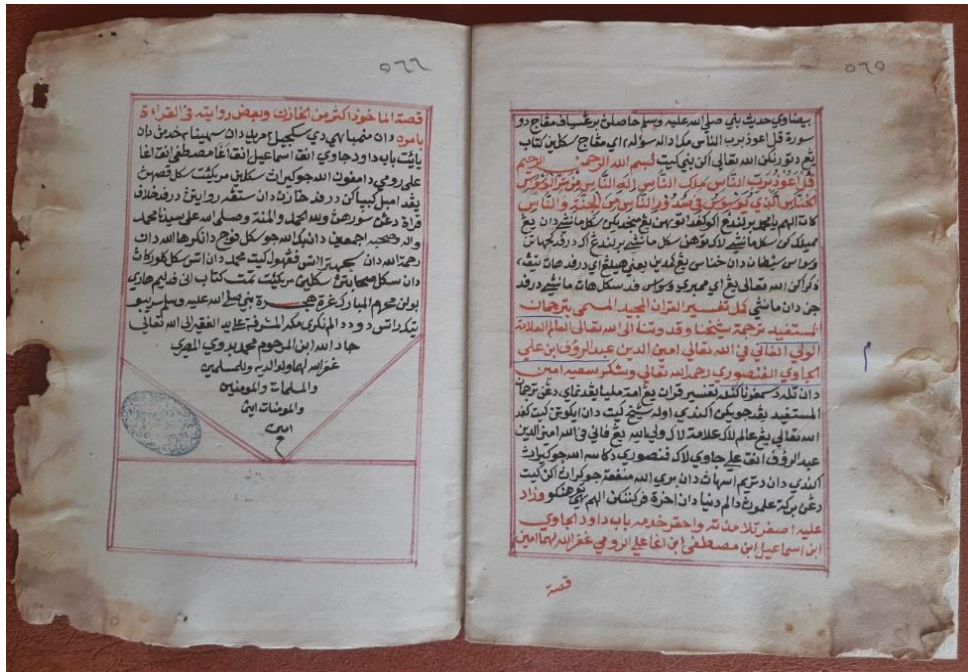 ٥٦٥
بيضاوي حديث نبي صلى الله عليه وسلم حاصلن برغسياف مڤاج دو
سورة قل اعوذ برب الناس مك اد اله سؤله٢ اي مڤاج سكلين كتاب
يڠ دتورنكن الله تعالى اكن نبي كيت بسم الله الرحمن الرحيم
قل اعوذ برب الناس ملك الناس اله الناس من شر الوسواس
الخناس الذي يوسوس في صدور الناس من الجنة والناس
كات الهم يا محمد برلندڠ اكو كڤد توهن يڠ منجديكن سكل مانسي دان يڠ
مميلكي سكل مانسي لاك توهن سكل مانسي درڤد كجهاتن
وسواس شيطان دان خناس يڠ كمدين يعني هيلڠ اي درڤد هات تتكال
ذكر اكن الله تعالى يڠ اي ممبري وسوس ڤد سكل هات مانسي درڤد
جن دان مانسي كمل تفسير القران المجيد المسمى بترجمان
المستفيد ترجمة شيخنا وقدوتنا الى الله تعالى العالم العلامة
الولي الفاني في الله تعالى امين الدين عبد الرؤف ابن علي
الجاوي الفنصوري رحمه الله تعالى وشكر سعيه امين
دان تله سمڤرنله تفسير قران يڠ امة مليا يڠ دنماي دڠن ترجمان
المستفيد يڠ دجويكن اكندي اوله شيخ كيت دان ايكوتن كيت كڤد
الله تعالى يڠ عالم لاك علامة لاك ولي الله يڠ فاني في الله امين الدين
عبد الرؤف انق علي جاوي لاك فنصوري دكاسه الله جو كيران
اكندي دان دتريم اسهات دان ممبري الله منفعة جو كيران اكن كيت
دڠن بركة علمون دالم دنيا دان اخرة ڤركننكن الهم وزاد
عليه اصغر تلامذته واحقر خدمه باب داود الجاوي
ابن اسماعيل ابن مصطفى ابن اغا علي الرومي غفر الله لهم امين
قصة
م
٥٦٦
قصة الماخوذ اكثر من الخازن وبعض روايته في القراءة
بامره دان منمباهي دي سكچيل٢ مريد دان سهينا٢ خدمن دان
يائت باب داود جاوي انق اسماعيل انق اغا مصطفى انق اغا
علي رومي دامڤون الله جو كيران سكلين مريكئت سكل قصهن
يڠ دامبل كبياكن درڤد خازن دان ستڠه روايتن درڤد خلاف
قراة دڠن سورهن ولله الحمد والمنة وصلى الله على سيدنا محمد
واله وصحبه اجمعين دان بڬ الله جو سكل ڤوج دان كرها الله دان
رحمة الله دان سجهترا اتس ڤڠهول كيت محمد دان اتس سكل كلورڬان
دان سكل صحابتن سكلين مريكئت تمت كتاب اني ڤد ليم هاري
بولن محرم المبارك غرة هجرة نبي صلى الله عليه وسلم سريبو
مكه المشرفة على يد الفقير الى الله تعالى
جاد الله ابن المرحوم محمد بدوي المصري
غفر الله لهما ولوالديه وللمسلمين
والمسلمات والمومنين
والمومنات امين
امين